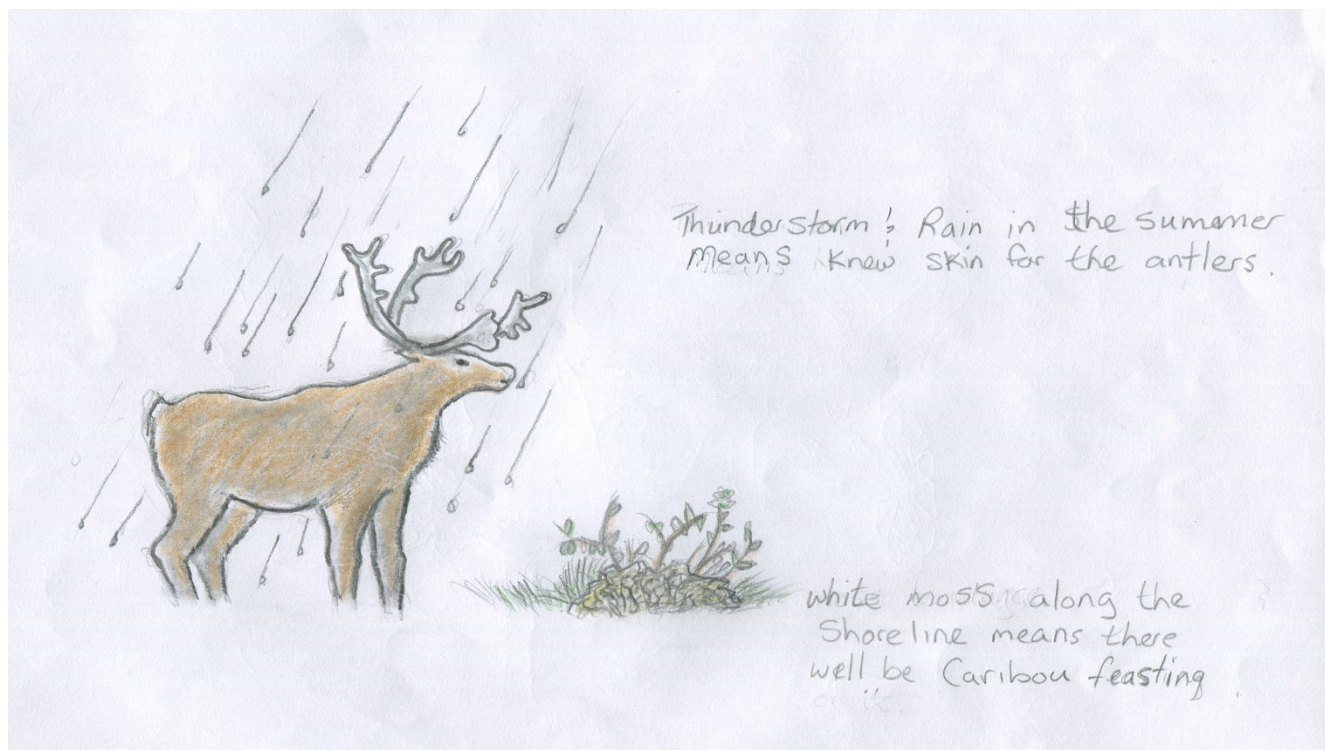 Thunderstorm & Rain in the summer
Means knew skin for the antlers.
white moss along the
Shoreline means there
well be Caribou feasting
on it.